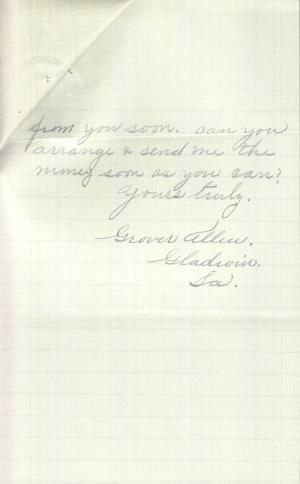 from you soon. can you
arrange & send me the
money soon as you can?
Yours truly,
Grover Allen.
Gladwin.
Ia.